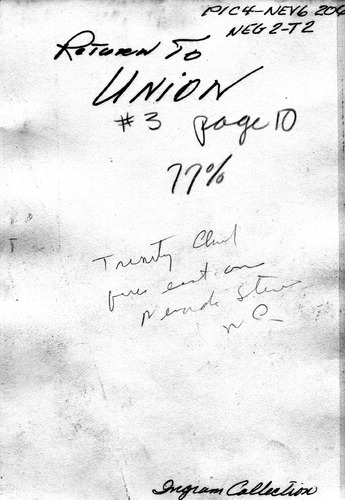 PIC4-NEV6 206
NEG 2-T2
RETURN TO
UNION
#3 page 10
77%
Trinity Chul
east on
Nevada
N C
Ingram Collection